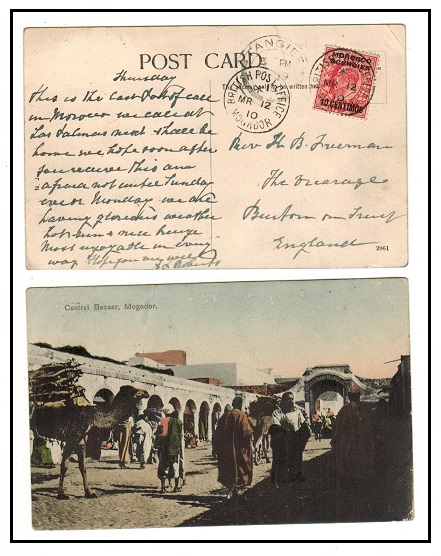 POST CARD
Thursday
This is the last Port of call
in Morocco we call at
Las Palmas next shall be
home we hope soon after
you receive this am
afraid not until Sunday
eve or Monday we are
having glorious weather
hot sun & nice
Most enjoyable in every
way. Hope you are well
TANGIER
BRITISH POST OFFICE
MR 12
10
MOGADOR
MOROCCO
AGENCIES
10 CENTIMOS
MR 12
10
Rev H B Freeman
The Vicarage
Burton on Trent
England
2861
Central Bazaar, Mogador.